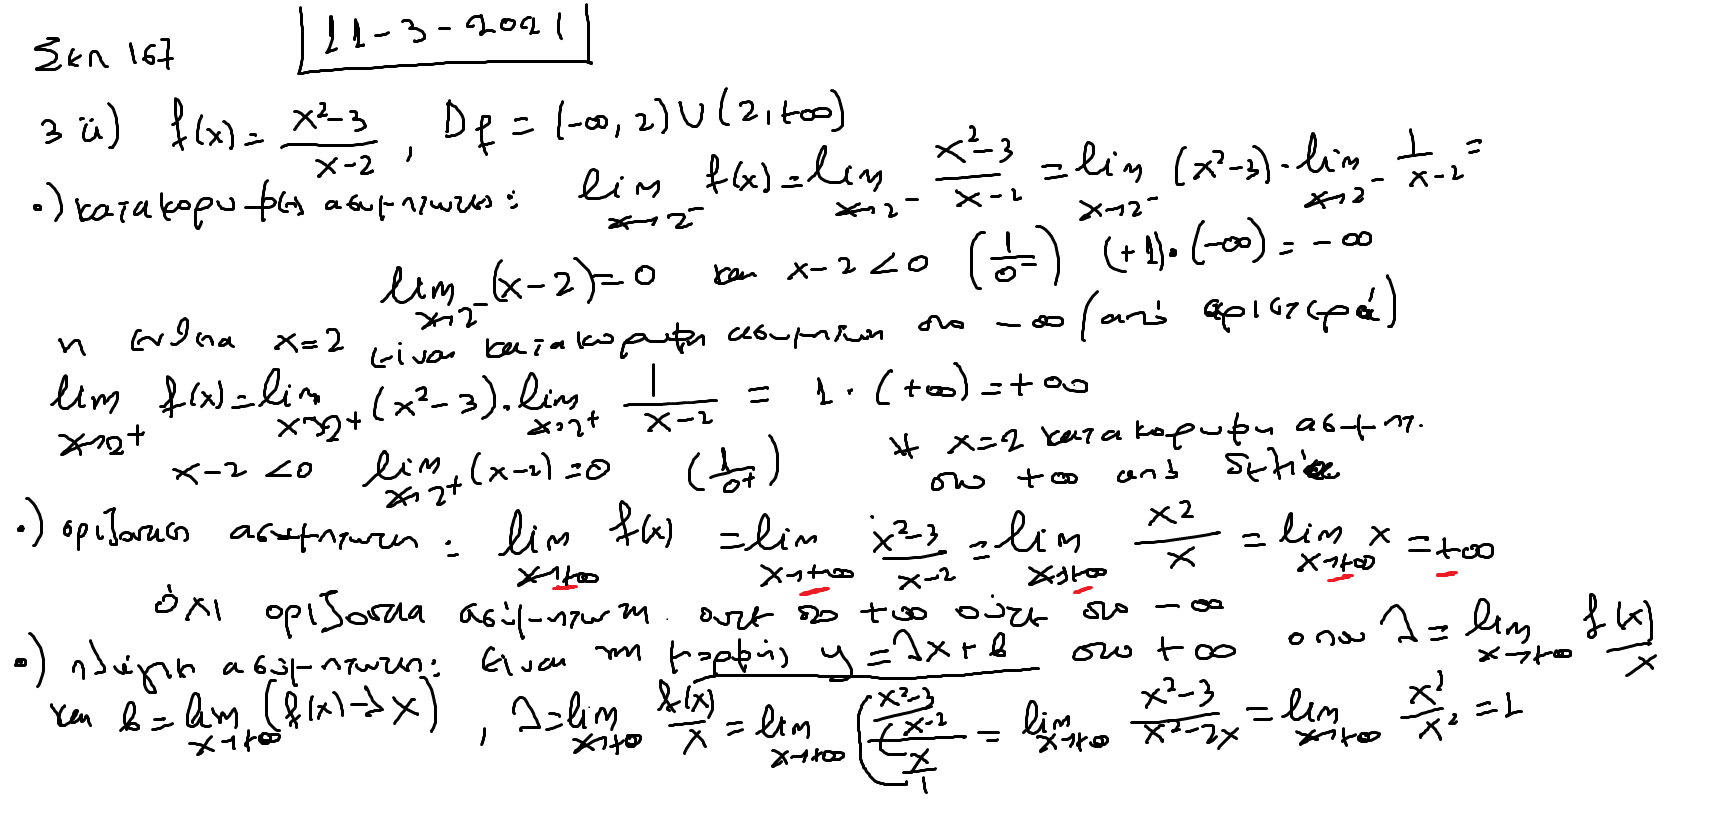 Σελ 167 11-3-2021
3 ii) f(x) = (x²-3)/(x-2) , Df = (-∞, 2) ∪ (2, +∞)
•) κατακόρυφες ασύμπτωτες: lim x→2⁻ f(x) = lim x→2⁻ (x²-3)/(x-2) = lim x→2⁻ (x²-3) · lim x→2⁻ 1/(x-2) =
lim x→2⁻ (x-2) = 0 και x-2 < 0 (1/0⁻) (+1)·(-∞) = -∞
η ευθεία x=2 είναι κατακόρυφη ασύμπτωτη στο -∞ (από αριστερά)
lim x→2⁺ f(x) = lim x→2⁺ (x²-3) · lim x→2⁺ 1/(x-2) = 1 · (+∞) = +∞
x-2 <0 lim x→2⁺ (x-2) = 0 (1/0⁺) * x=2 κατακόρυφη ασύμπτ.
στο +∞ από δεξιά
•) οριζόντιες ασύμπτωτες: lim x→+∞ f(x) = lim x→+∞ (x²-3)/(x-2) = lim x→+∞ x²/x = lim x→+∞ x = +∞
όχι οριζόντια ασύμπτωτη ούτε στο +∞ ούτε στο -∞
•) πλάγιες ασύμπτωτες: είναι της μορφής y = λx + β στο +∞ όπου λ = lim x→+∞ f(x)/x
και β = lim x→+∞ (f(x)-λx) , λ = lim x→+∞ f(x)/x = lim x→+∞ ((x²-3)/(x-2))/(x/1) = lim x→+∞ (x²-3)/(x²-2x) = lim x→+∞ x²/x² = 1